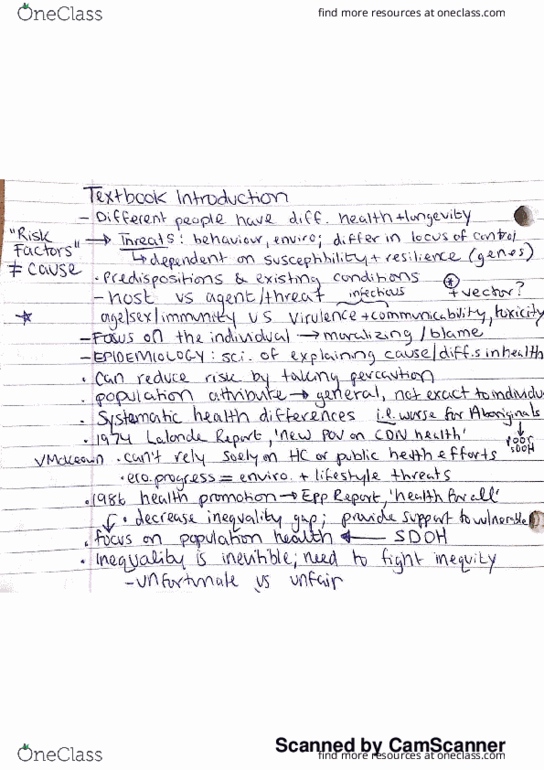 OneClass
find more resources at oneclass.com
Textbook Introduction
- Different people have diff. health + longevity
"Risk Factors" ≠ cause
→ Threats: behaviour, enviro; differ in locus of control
↳ dependent on susceptibility + resilience (genes)
• Predispositions & existing conditions
- host vs agent/threat infectious + vector?
age/sex/immunity vs virulence + communicability, toxicity
- Focus on the individual → moralizing/blame
- EPIDEMIOLOGY: sci. of explaining cause/diff.s in health
• Can reduce risk by taking percaution
• population attribute → general, not exact to individu
• Systematic health differences i.e. worse for Aboriginals
↓ poor SDOH
• 1974 Lalonde Report, 'new POV on CDN health'
VMckeown • can't rely soely on HC or public helth efforts
• ero. progress = enviro. + lifestyle threats
• 1986 health promotion → Epp Report, 'health for all'
↓ • decrease inequality gap; provide support to vulnerable
• focus on population health ← SDOH
• inequality is inevitible; need to fight inequity
- unfortunate vs unfair
Scanned by CamScanner
OneClass
find more resources at oneclass.com